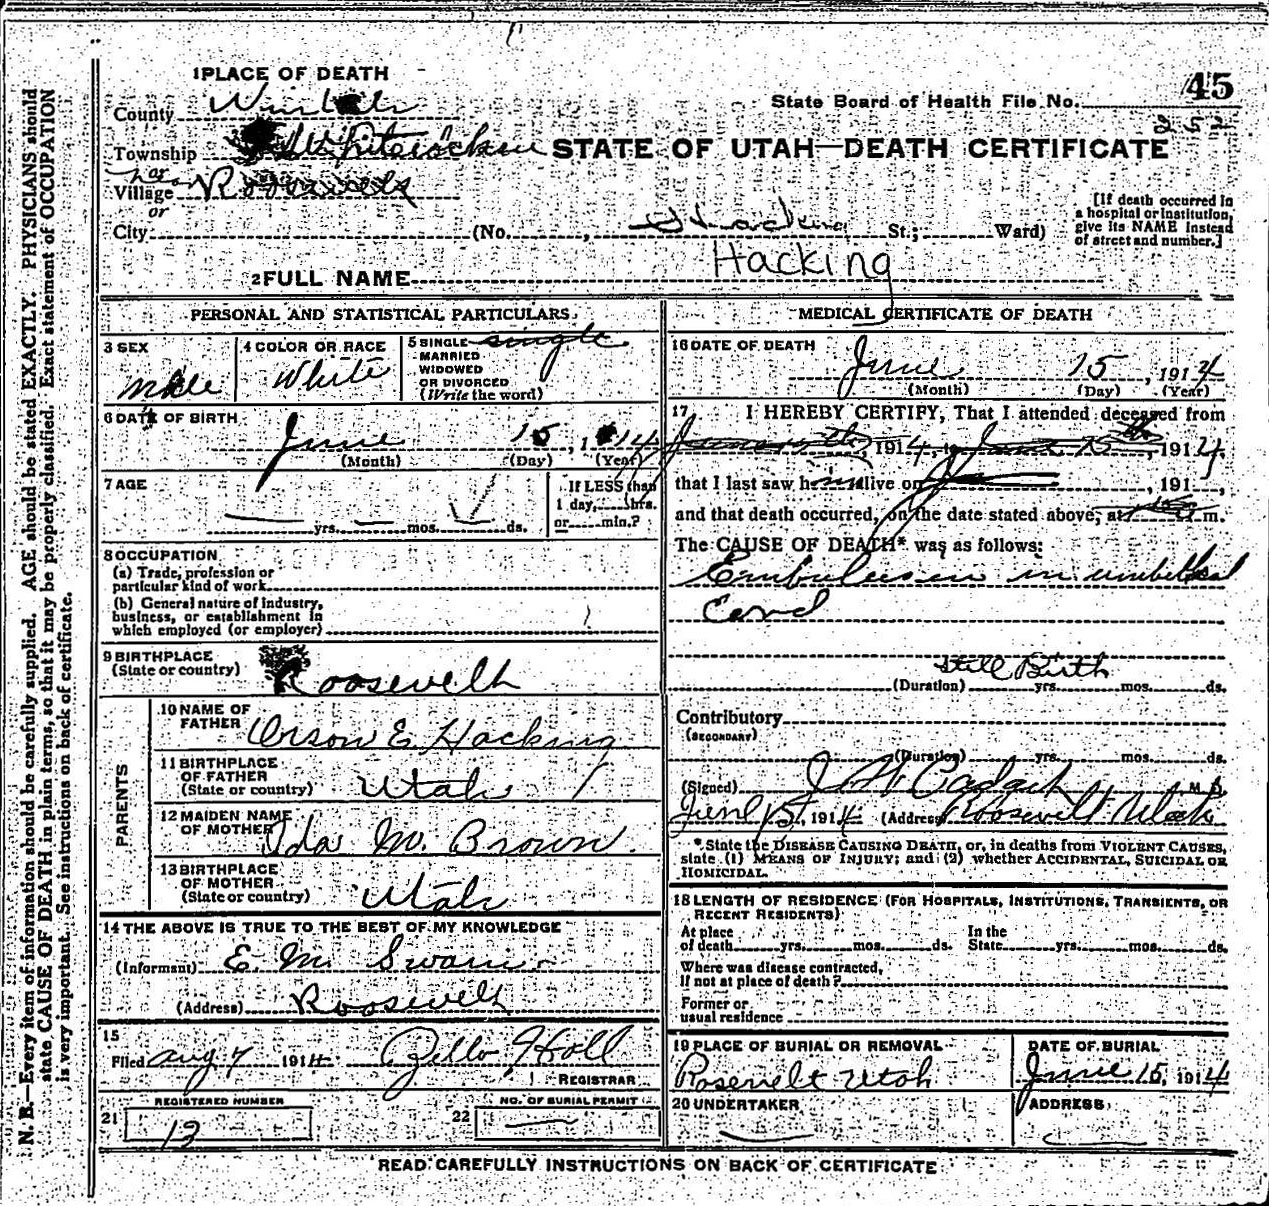 45
1 PLACE OF DEATH
State Board of Health File No.
County
Township Whiterocks
STATE OF UTAH—DEATH CERTIFICATE
or
Village Roosevelt
or
City (No. , St.; Ward)
[If death occurred in a hospital or institution, give its NAME instead of street and number.]
2 FULL NAME Hacking
PERSONAL AND STATISTICAL PARTICULARS
3 SEX Male
4 COLOR OR RACE White
5 SINGLE MARRIED WIDOWED OR DIVORCED (Write the word) single
6 DATE OF BIRTH
June 15, 1914
(Month) (Day) (Year)
7 AGE
yrs. mos. ds.
If LESS than 1 day, hrs. or min.?
8 OCCUPATION
(a) Trade, profession or particular kind of work
(b) General nature of industry, business, or establishment in which employed (or employer)
9 BIRTHPLACE (State or country) Roosevelt
PARENTS
10 NAME OF FATHER Orson E. Hacking
11 BIRTHPLACE OF FATHER (State or country) Utah
12 MAIDEN NAME OF MOTHER Ida M. Brown.
13 BIRTHPLACE OF MOTHER (State or country) Utah
14 THE ABOVE IS TRUE TO THE BEST OF MY KNOWLEDGE
(Informant) E. M. Swain
(Address) Roosevelt
15
Filed Aug 7 1914 Holl
REGISTRAR
REGISTERED NUMBER
21 13
NO. OF BURIAL PERMIT
22
MEDICAL CERTIFICATE OF DEATH
16 DATE OF DEATH
June 15, 1914
(Month) (Day) (Year)
17 I HEREBY CERTIFY, That I attended deceased from
June 15th, 1914, to June 15th, 1914,
that I last saw him alive on , 191 ,
and that death occurred, on the date stated above, at m.
The CAUSE OF DEATH* was as follows:
in umbilical
Cord
Still Birth
(Duration) yrs. mos. ds.
Contributory
(SECONDARY)
(Duration) yrs. mos. ds.
(Signed) J W M. D.
June 15, 1914 (Address) Roosevelt Utah
*State the DISEASE CAUSING DEATH, or, in deaths from VIOLENT CAUSES, state (1) MEANS OF INJURY; and (2) whether ACCIDENTAL, SUICIDAL OR HOMICIDAL.
18 LENGTH OF RESIDENCE (FOR HOSPITALS, INSTITUTIONS, TRANSIENTS, OR RECENT RESIDENTS)
At place of death yrs. mos. ds. In the State yrs. mos. ds.
Where was disease contracted, If not at place of death?
Former or usual residence
19 PLACE OF BURIAL OR REMOVAL
Rosevelt Utah
DATE OF BURIAL
June 15, 1914
20 UNDERTAKER
ADDRESS
READ CAREFULLY INSTRUCTIONS ON BACK OF CERTIFICATE
N. B.—Every item of information should be carefully supplied. AGE should be stated EXACTLY. PHYSICIANS should
state CAUSE OF DEATH in plain terms, so that it may be properly classified. Exact statement of OCCUPATION
is very important. See instructions on back of certificate.